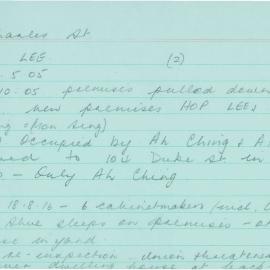 Charles St
LEE (2)
5.05
10.05 premises pulled down
new premises HOP LEE
Mon Sing)
Occupied by Ah Ching & A
to 104 Duke St in
- Only Ah Ching
18.8.16 - 6 cabinetmakers (incl.
sleeps on premises -
in yard
re-inspection, union threatened
dwelling house at